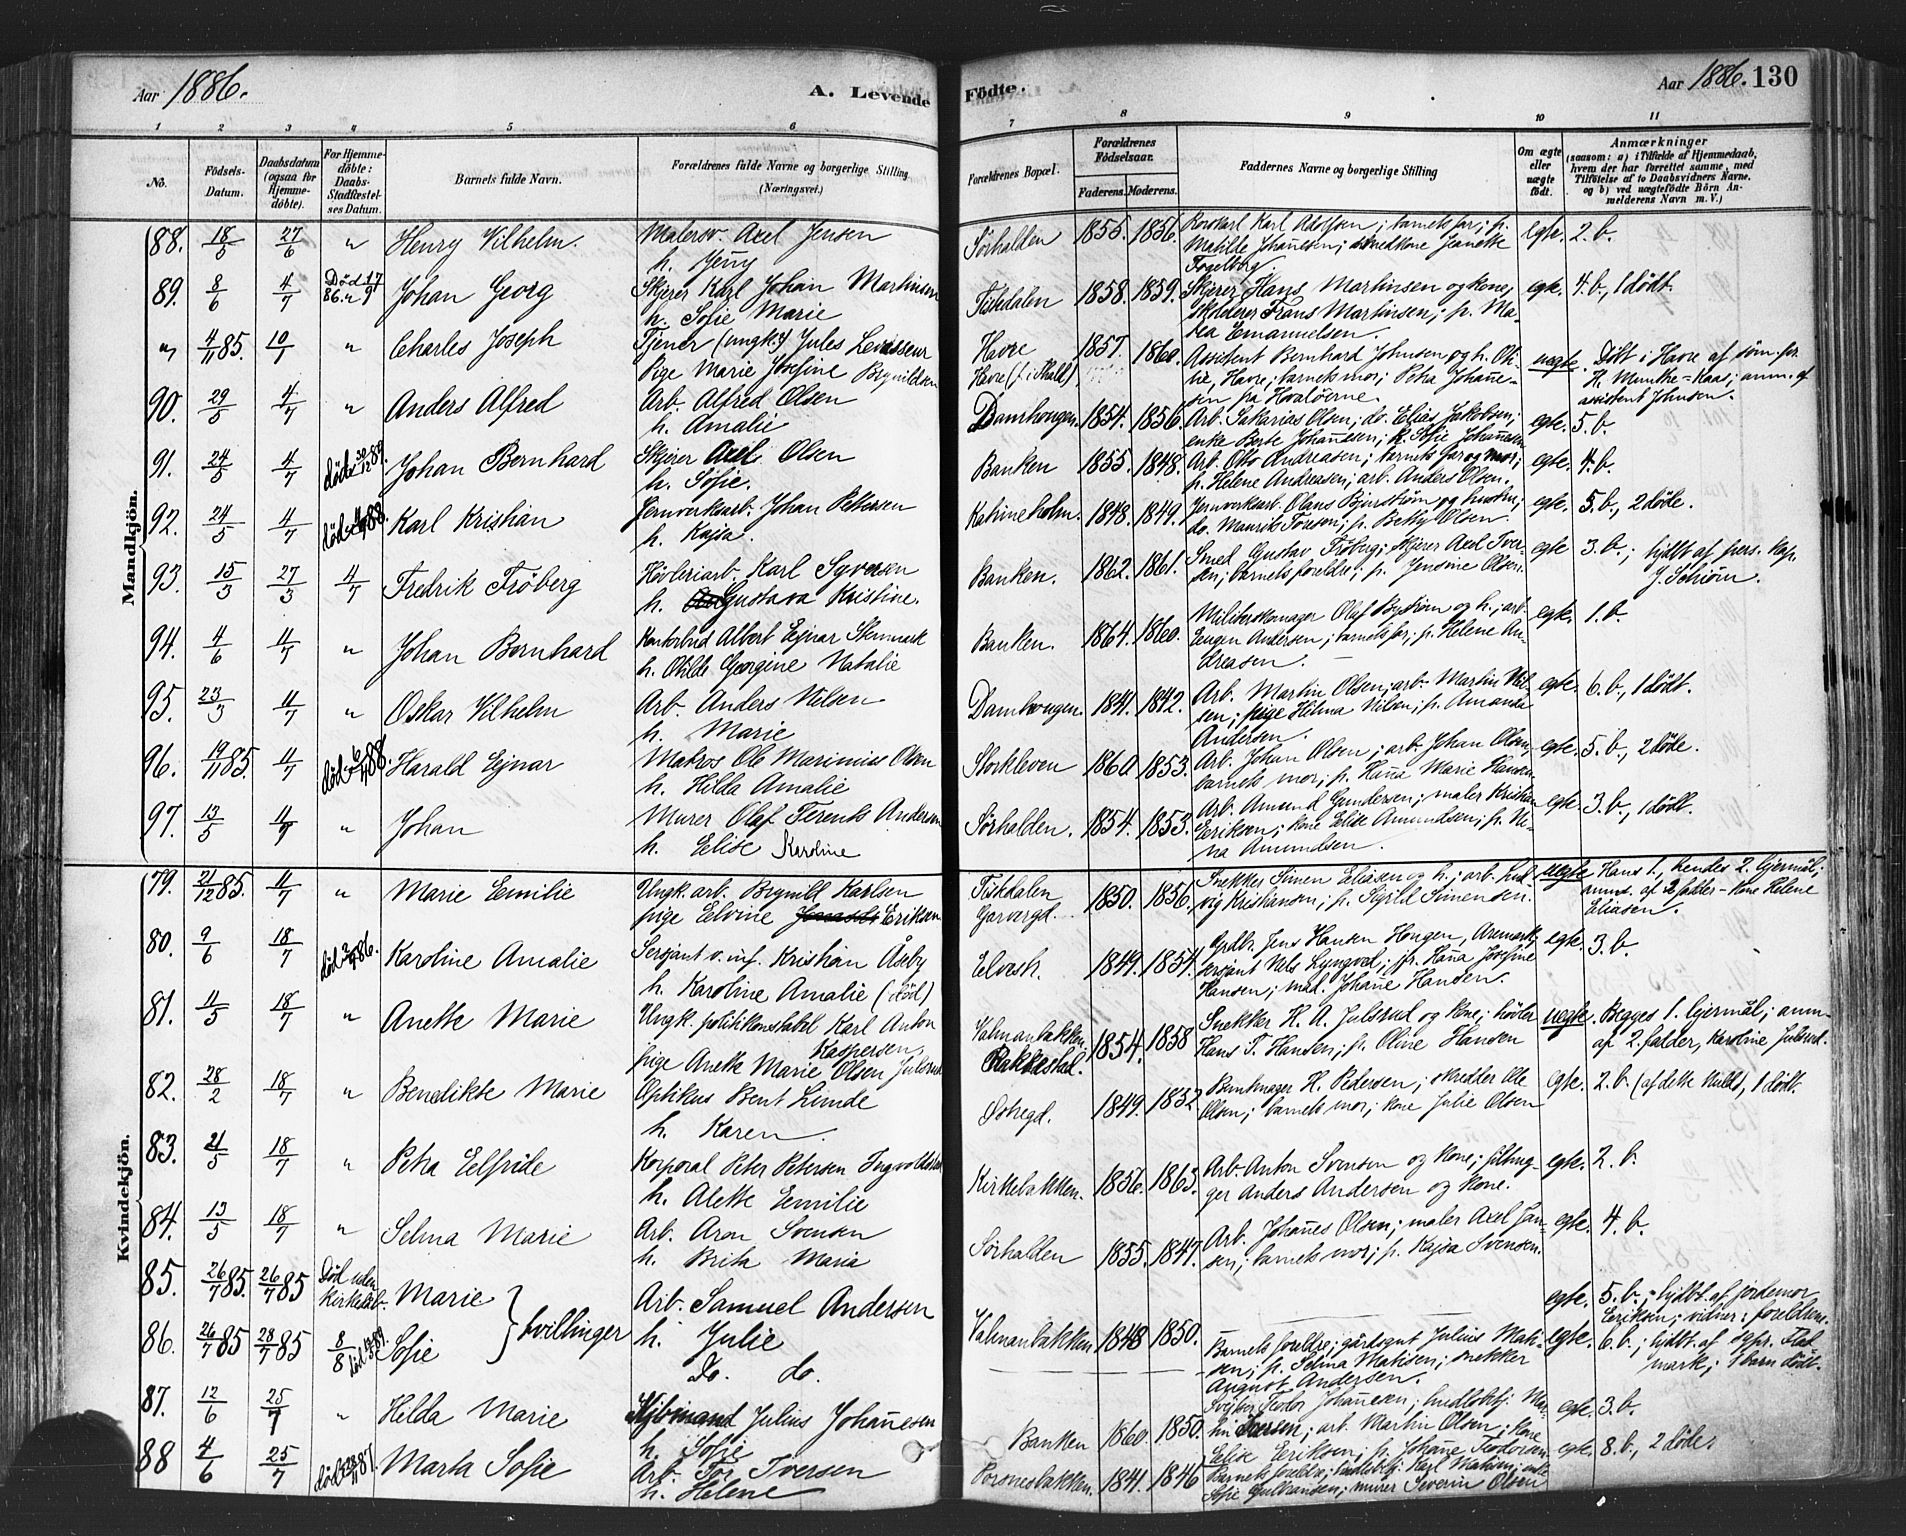 Aar 1886.
A. Levende
Födte.
Aar 1886. 130
1 2 3 4 5 6 7 8 9 10 11
No.
Födsels-Datum.
Daabsdatum (ogsaa for Hjemmedöbte).
For Hjemmedöbte: Daabs-Stadfæstelses Datum.
Barnets fulde Navn.
Forældrenes fulde Navne og borgerlige Stilling (Næringsvei.)
Forældrenes Bopæl.
Forældrenes Födselsaar.
Faderens. Moderens.
Faddernes Navne og borgerlige Stilling
Om ægte eller uægte födt.
Anmærkninger
(saasom: a) i Tilfælde af Hjemmedaab, hvem der har forrettet samme, med Tilföielse af to Daabsvidners Navne. og b) ved uægtefödte Börn Anmelderens Navn m. V.)
Mandkjön.
88. 18/5 27/6 " Henry Vilhelm. Malersv. Axel Jensen
h. Jenny
Sörhalden 1855. 1856. Karl Adolfsen; barnets far; p.
Matilde Johannesen; smedkone Jeanette
Fogelberg.
egte. 2. b.
89. 8/6 4/7 Död 17/9 86. Johan Georg Skjærer Karl Johan Martinsen
h. Sofie Marie
Fiskedalen 1858. 1859. Skjærer Hans Martinsen og kone;
Frans Martinsen; p. Ma-
tea Emanuelsen.
egte. 4. b., 1 dödt.
" 4/11 85. 10/1 " Charles Joseph Tjener (ungk.) Jules Levasseur
Pige Marie Josefine Brynildsen
Havre
Havre (f. i Fhald)
1857. 1860. Assistent Bernhard Johnsen og h. Oti-
lie, Havre; barnets mor; Petra Johanne-
sen på Hvalöerne.
uegte. Döbt i Havre af söm.pr.
H. Munthe-Kaas; anm. af
assistent Johnsen.
90. 29/5 4/7 " Anders Alfred Arb. Alfred Olsen
h. Amalie
Damhougen 1854. 1856. Arb. Sakarias Olsen; do. Elias Jakobsen;
enke Berte Johannesen; p. Sofie Johannesen
egte. 5. b.
91. 24/5 4/7 död 30/12 89. Johan Bernhard Skjærer Axel Olsen
h. Sofie.
Banken 1855. 1848. Arb. Otto Andreasen; barnets far og mor;
p. Helene Andreasen; arb. Anders Olsen.
egte. 4. b.
92. 24/5 4/7 död 88. Karl Kristian Jernverksarb. Johan Petersen
h. Kajsa.
Katrineholm. 1848. 1849. Jernverksarb. Olaus Bjurström og hustru;
do. Mauritz Toresen; p. Betty Olsen.
egte. 5. b., 2 döde.
93. 15/3 27/3 4/7 Fredrik Fröberg Hövleriarb. Karl Syversen
h. Gustava Kristine.
Banken. 1862. 1861. Smed Gustav Fröberg; skjærer Axel Iver-
sen; barnets foreldre; p. Jensine Olsen.
egte 3. b.; hjdbt af pers. kap.
J. Schiörn.
94. 4/6 4/7 " Johan Bernhard Kontorbud Albert Ejnar Stenmark
h. Otilde Georgine Natalie
Banken. 1864. 1860. Olaf Byström og h.; arb.
Eugen Andersen; barnets far; p. Helene An-
dreasen.
egte. 1. b.
95. 23/3 4/7 " Oskar Vilhelm Arb. Anders Nilsen
h. Marie
Damhougen. 1841. 1842. Arb. Martin Olsen; arb. Martin Nil-
sen; pige Hilma Nilsen; p. Amanda
Andersen.
egte. 6. b., 1 dödt.
96. 19/11 85. 4/7 död 88. Harald Ejnar Matros Ole Marinius Olsen
h. Hilda Amalie
Storkleven 1860. 1853. Arb. Johan Olsen; arb. Johan Olsen,
barnets mor; p. Hanna Marie Hansen.
egte. 5. b., 2 döde.
97. 13/5 4/7 " Johan Murer Olaf Ferents Andersen
h. Elise Karoline
Sörhalden. 1854. 1853. Arb. Amund Gundersen; maler Kristian
Eriksen; kone Elise Amundsen; p. Ni-
na Amundsen.
egte 3. b., 1 dödt.
Kvindekjön.
79. 21/12 85. 4/7 " Marie Emilie Ungk. arb. Brynild Karlsen
pige Elvine Eriksen
Fiskdalen
Garvergd.
1850. 1856. Snekker Simen Eliasen og h.; arb. Lud-
vig Kristiansen; p. Sigrid Simensen.
uegte Hans 1., hendes 2. leiermål;
anm. af 2 fadder - kone Helene
Eliasen.
80. 9/6 18/7 död 86. Karoline Amalie Sersjant v. inf. Kristian Åsby
h. Karoline Amalie (död)
Elvestr. 1849. 1854. Grdbr. Jens Hansen Hougen, Aremark;
sersjant Nels Lyngved; p. Hanna Josefine
Hansen; mad. Johanne Hansen.
egte. 3. b.
81. 4/5 18/7 " Anette Marie Ungk. politikonstabel Karl Anton
Kaspersen,
pige Anette Marie Olsen Julsrud
Valmanbakken.
Rakkestad.
1854. 1858 Snekker H. A. Julsrud og kone; hövler
Hans T. Hansen; p. Oline Hansen
uegte. Begges 1. leiermål; anm.
af 2. fadder, Karoline Julsrud.
82. 28/2 18/7 " Benedikte Marie Optikus Bent Lunde
h. Karen.
1849. 1852 Buntmager H. Pedersen; skredder Ole
Olsen; barnets mor; kone Julie Olsen
egte. 2. b. (af dette kuld), 1 dödt.
83. 21/5 18/7 " Petra Elfride Korporal Peter Petersen Ingvoldstad
h. Alette Emilie
Kirkebakken. 1856. 1863. Arb. Anton Svensen og kone;
Anders Andersen og kone.
egte. 2. b.
84. 13/5 18/7 " Selma Marie Arb. Aron Svensen
h. Brita Maria
Sörhalden 1855. 1847. Arb. Johannes Olsen; maler Axel Jan-
sen; barnets mor; p. Kajsa Svensen.
egte. 4. b.
85. 26/7 85. 26/7 85 Död uden kirkedåb. Marie } tvillinger Arb. Samuel Andersen
h. Julie
Valmanbakken 1848 1850.
egte. 5. b.; hjdbt. af jordemor
Eriksen; vidner: foreldrene.
86. 26/7 85 28/7 85 8/8 död 89. Sofie Do. do.
Barnets foreldre; gårdsgut Julius Mati-
sen; p. Selma Matisen; snekker
August Andersen.
egte. 6. b.; hjdbt. af sgpr. Flad-
mark; 1 barn dödt.
87. 12/6 25/7 " Hilda Marie Julius Johannesen
h. Sofie
Banken 1860. 1850. Teodor Johannesen; Mar-
tin Iversen; arb. Martin Olsen; kone
Elise Eriksen; p. Johanne Teodorsen
egte. 3. b.
88 4/6 25/7 död 87. Marta Sofie Arb. Tor Iversen
h. Helene
Torsnesbakken. 1841. 1846 Barnets foreldre; Karl Matisen; enke
Sofie Gulbransen; murer Severin Olsen
egte. 8. b., 2 döde.